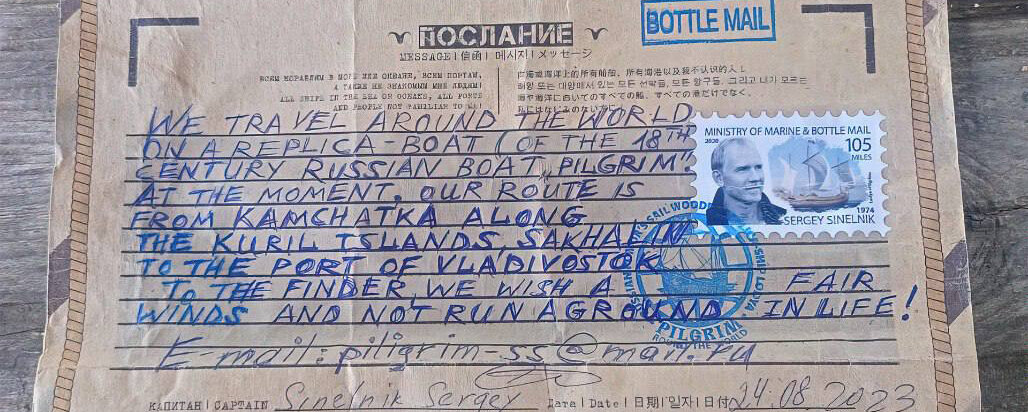 BOTTLE MAIL
ПОСЛАНИЕ
MESSAGE | 信函 | 메시지 | メッセージ
ВСЕМ КОРАБЛЯМ В МОРЕ ИЛИ ОКЕАНЕ, ВСЕМ ПОРТАМ,
А ТАКЖЕ НЕ ЗНАКОМЫМ МНЕ ЛЮДЯМ!
ALL SHIPS IN THE SEA OR OCEANS, ALL PORTS
AND PEOPLE NOT FAMILIAR TO ME!
WE TRAVEL AROUND THE WORLD
ON A REPLICA-BOAT (OF THE 18TH
CENTURY RUSSIAN BOAT "PILGRIM"
AT THE MOMENT, OUR ROUTE IS
FROM KAMCHATKA ALONG
THE KURIL ISLANDS, SAKHALIN
TO THE PORT OF VLADIVOSTOK
TO THE FINDER, WE WISH A FAIR
WINDS AND NOT RUN AGROUND IN LIFE!
E-mail: piligrim-ss@mail.ru
MINISTRY OF MARINE & BOTTLE MAIL
2020
105
MILES
1974
SERGEY SINELNIK
PILGRIM
ROUND THE WORLD
КАПИТАН | CAPTAIN Sinelnik Sergey
Дата | Date | 日期 | 일자 | 日付 24.08.2023